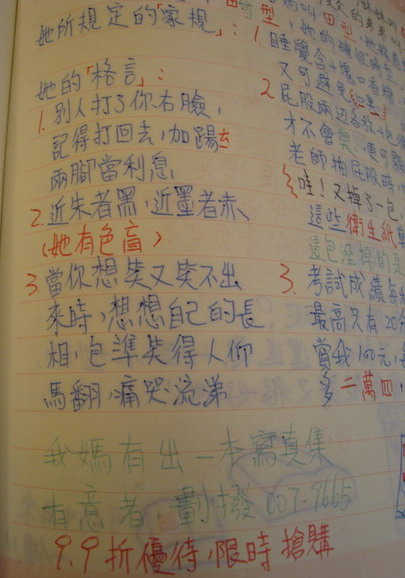 她所規定的「家規」:
她的「格言」:
1. 別人打了你右臉,
記得打回去,加踢
兩腳當利息,
2. 近朱者黑,近墨者赤、
(她有色盲)
3. 當你想笑又笑不出
來時,想想自己的長
相,包準笑得人仰
馬翻,痛哭流涕
我媽有出一本寫真集
有意者,劃撥007-9665
9.9折優待,限時搶購
1 睡覺含
又可避免
2. 屁股兩
才不會
老師拍屁股時
哇!又掉了一包,
這些衛生紙
這包沒掉的是
3. 考試成績
最高只有20分
賞我100元,
多二萬四,